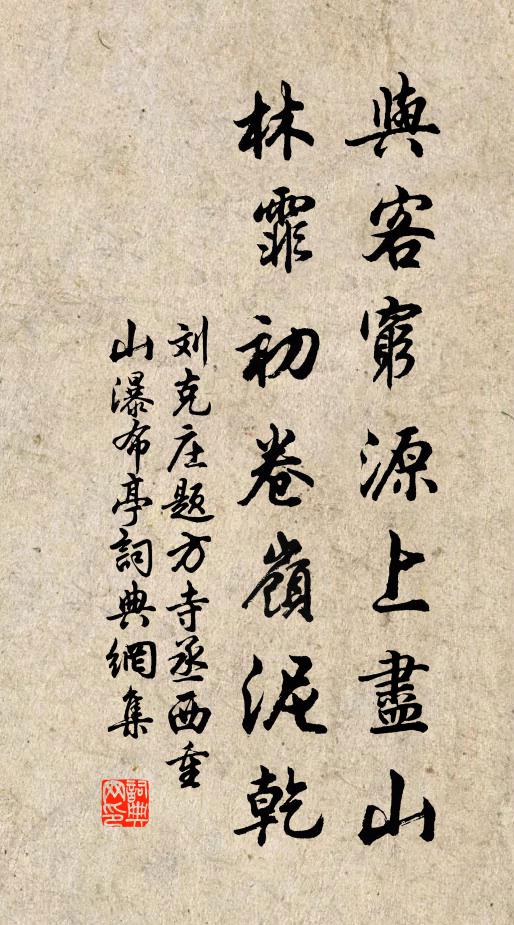 與客窮源上盡山
林霏初卷嶺泥乾
刘克庄题方寺丞西重
山瀑布亭詞典網集
詞典網印